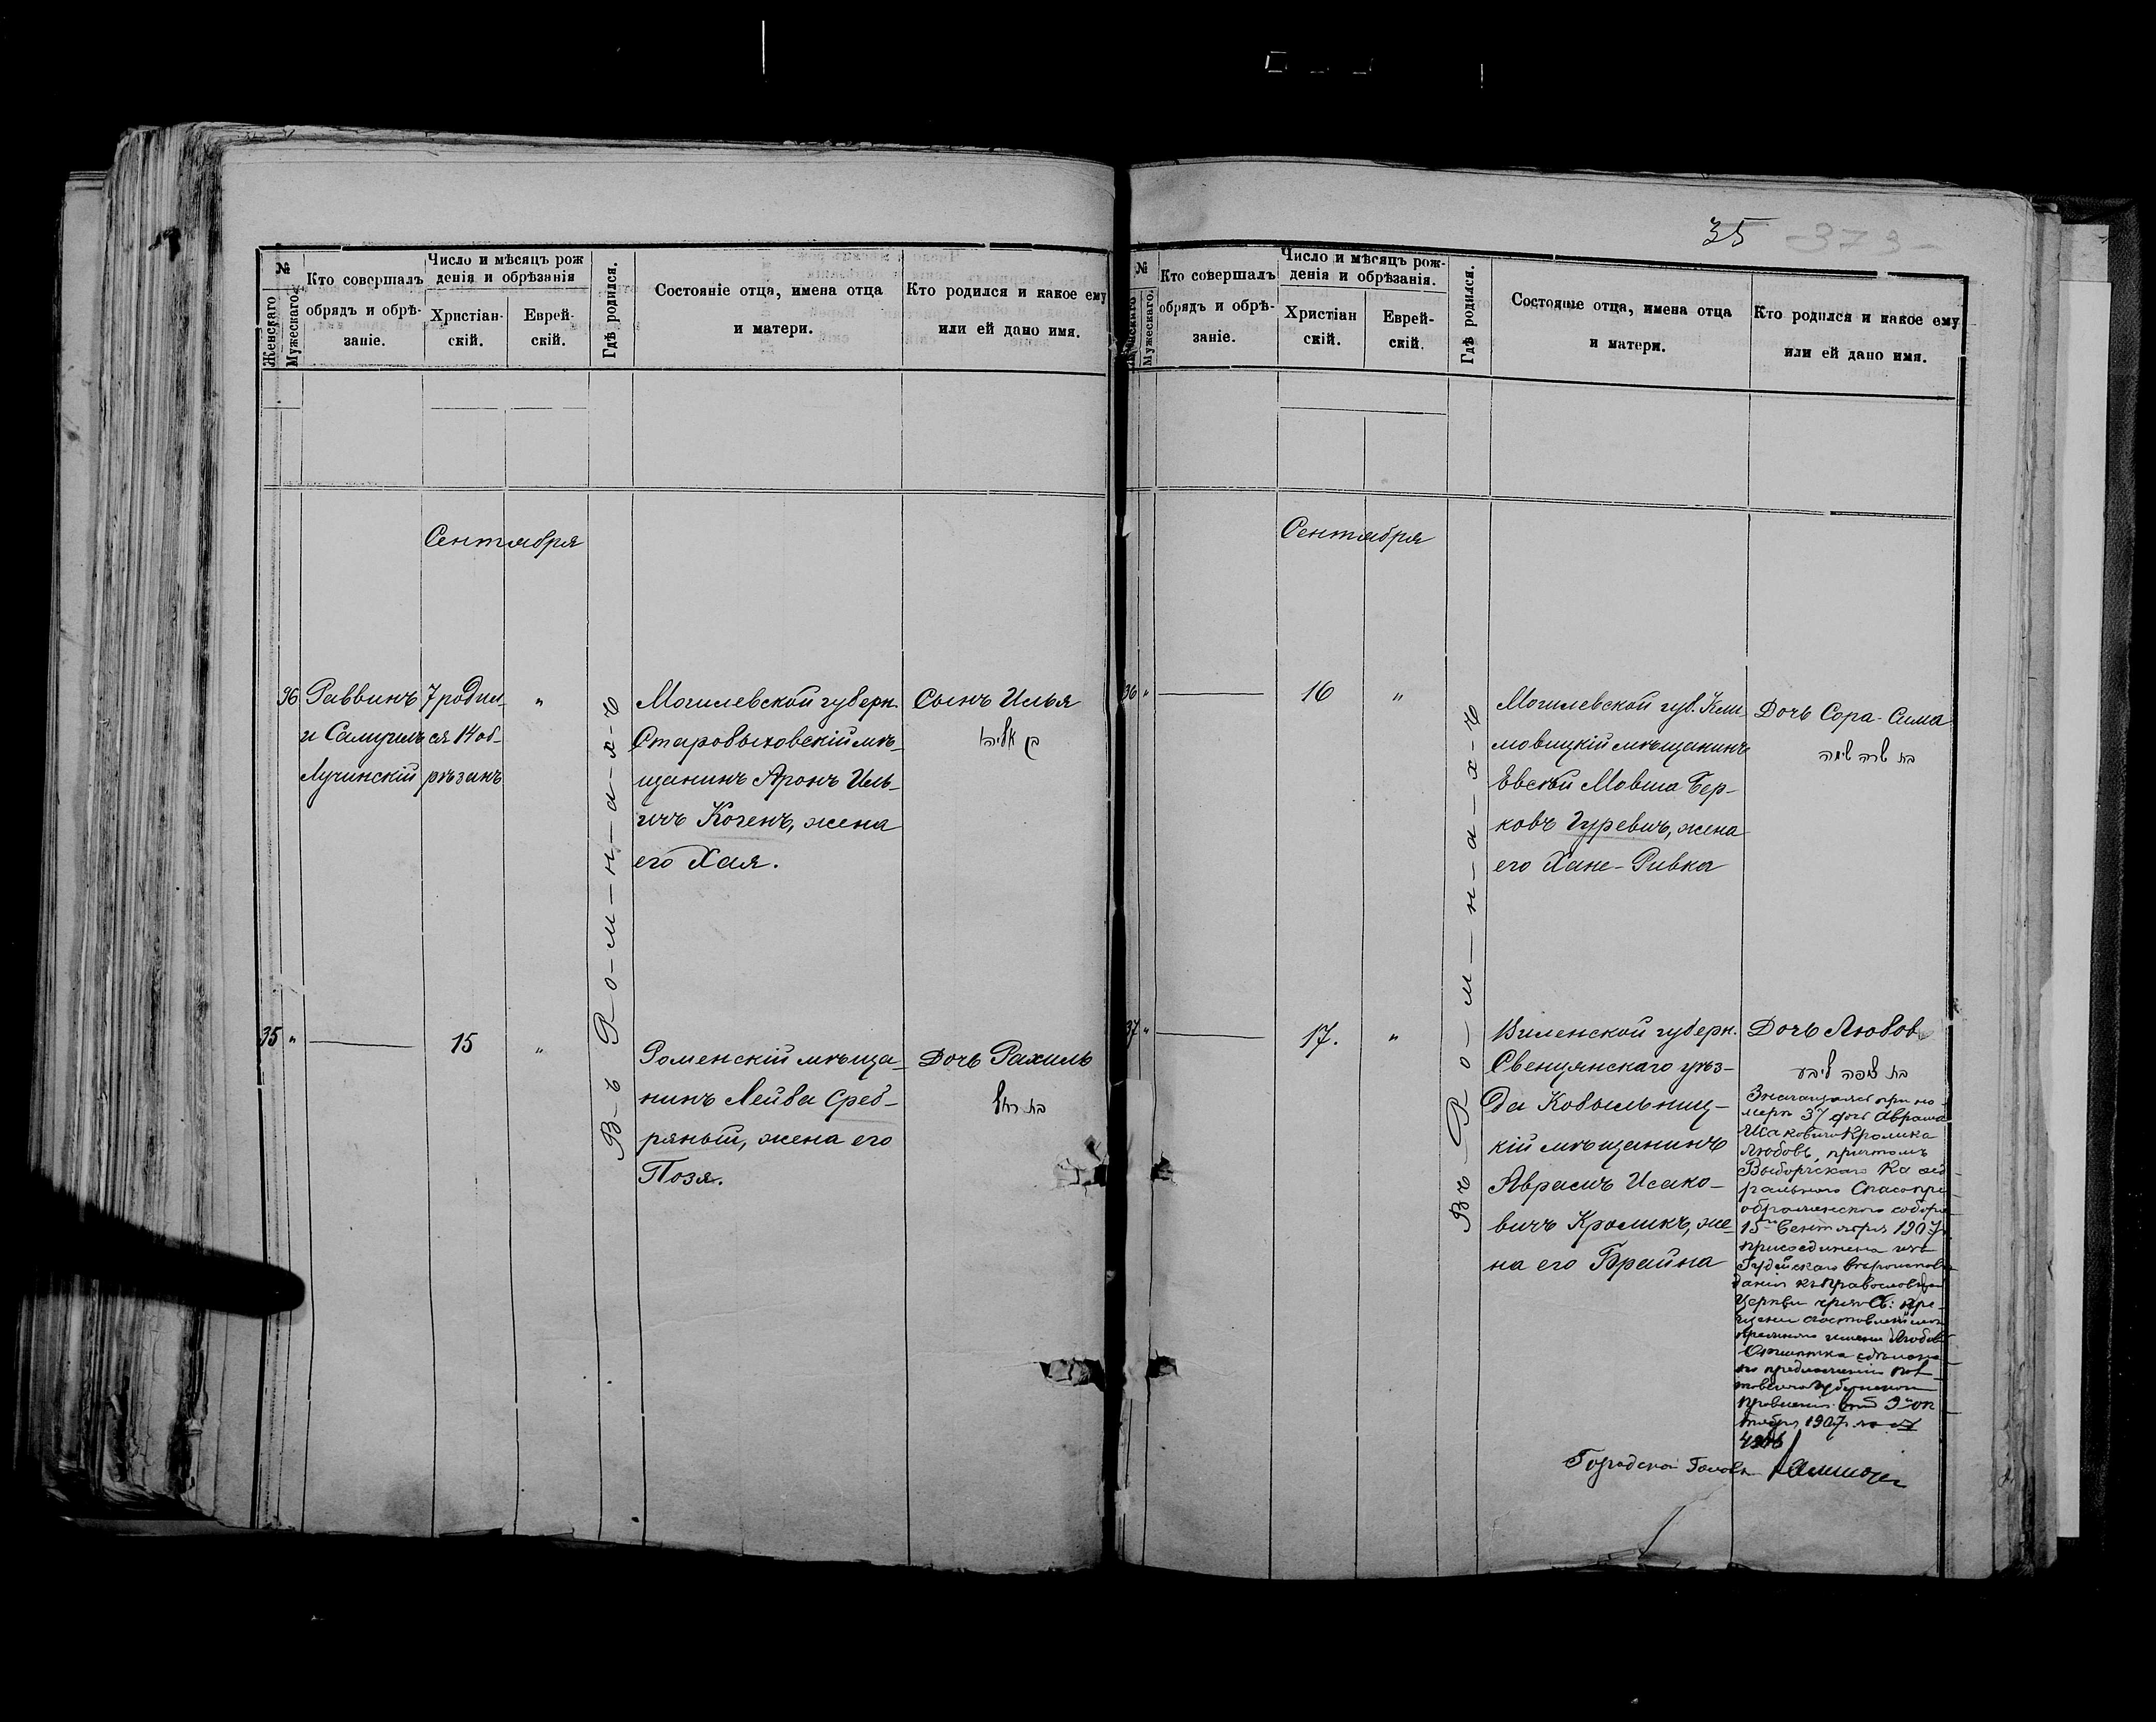 №
Женскаго
Мужескаго.
Кто совершалъ
обрядъ и обрѣ-
заніе.
Число и мѣсяцъ рож
денія и обрѣзанія
Христіан-
скій.
Еврей-
скій.
Гдѣ родился.
Состояніе отца, имена отца
и матери.
Кто родился и какое ему
или ей дано имя.
Сентября
36 Раввинъ 7 родил- "
и Самуилъ ся 14 об-
Лучинскій рѣзанъ
Въ Ромнахъ
Могилевской губерн.
Старобыховскій мѣ-
щанинъ Аронъ Иль-
ичъ Когенъ, жена
его Хая.
Сынъ Илья
בן אליהו
35 " 15 "
Роменскій мѣща-
нинъ Лейба Среб-
ряный, жена его
Позя.
Дочь Рахиль
בת רחל
35 -373-
№
Женскаго
Мужескаго.
Кто совершалъ
обрядъ и обрѣ-
заніе.
Число и мѣсяцъ рож-
денія и обрѣзанія.
Христіан
скій.
Еврей-
скій.
Гдѣ родился.
Состояніе отца, имена отца
и матери.
Кто родился и какое ему
или ей дано имя.
Сентября
36 " 16 "
Въ Ромнахъ
Могилевской губ. Кли-
мовицкій мѣщанинъ
Евсѣй Мовша Бер-
ковъ Гуревичъ, жена
его Хане-Ривка
Дочь Сора-Сима
בת שרה סימה
37 " 17. "
Виленской губерн.
Свенцянскаго уѣз-
да Кобыльниц-
кій мѣщанинъ
Абрамъ Исако-
вичъ Кроликъ, же-
на его Брайна
Дочь Любовь
בת ליבע
Значащаяся при но-
мерѣ 37 дочь Абрама
Исаковича Кролика
Любовь, причтомъ
Выборгскаго Каѳед-
ральнаго Спасопре-
ображенскаго собора
15го Сентября 1907 г.
присоединена изъ
Іудейскаго вѣроиспов-
данія къ православной
Церкви чрезъ Св: кре-
щеніе
имени Любовь
Отмѣтка сдѣлана
по предложенію Пол-
тавскаго Губернскаго
Правленія отъ 9го ок-
тября 1907 г. за №
Городской Голова